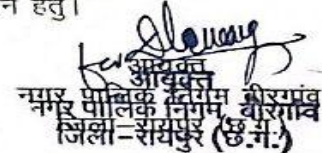 न हेतु।
आयुक्त
आयुक्त
नगर पालिक निगम, बीरगांव
नगर पालिक निगम, बीरगांव
जिला-रायपुर (छ.ग.)